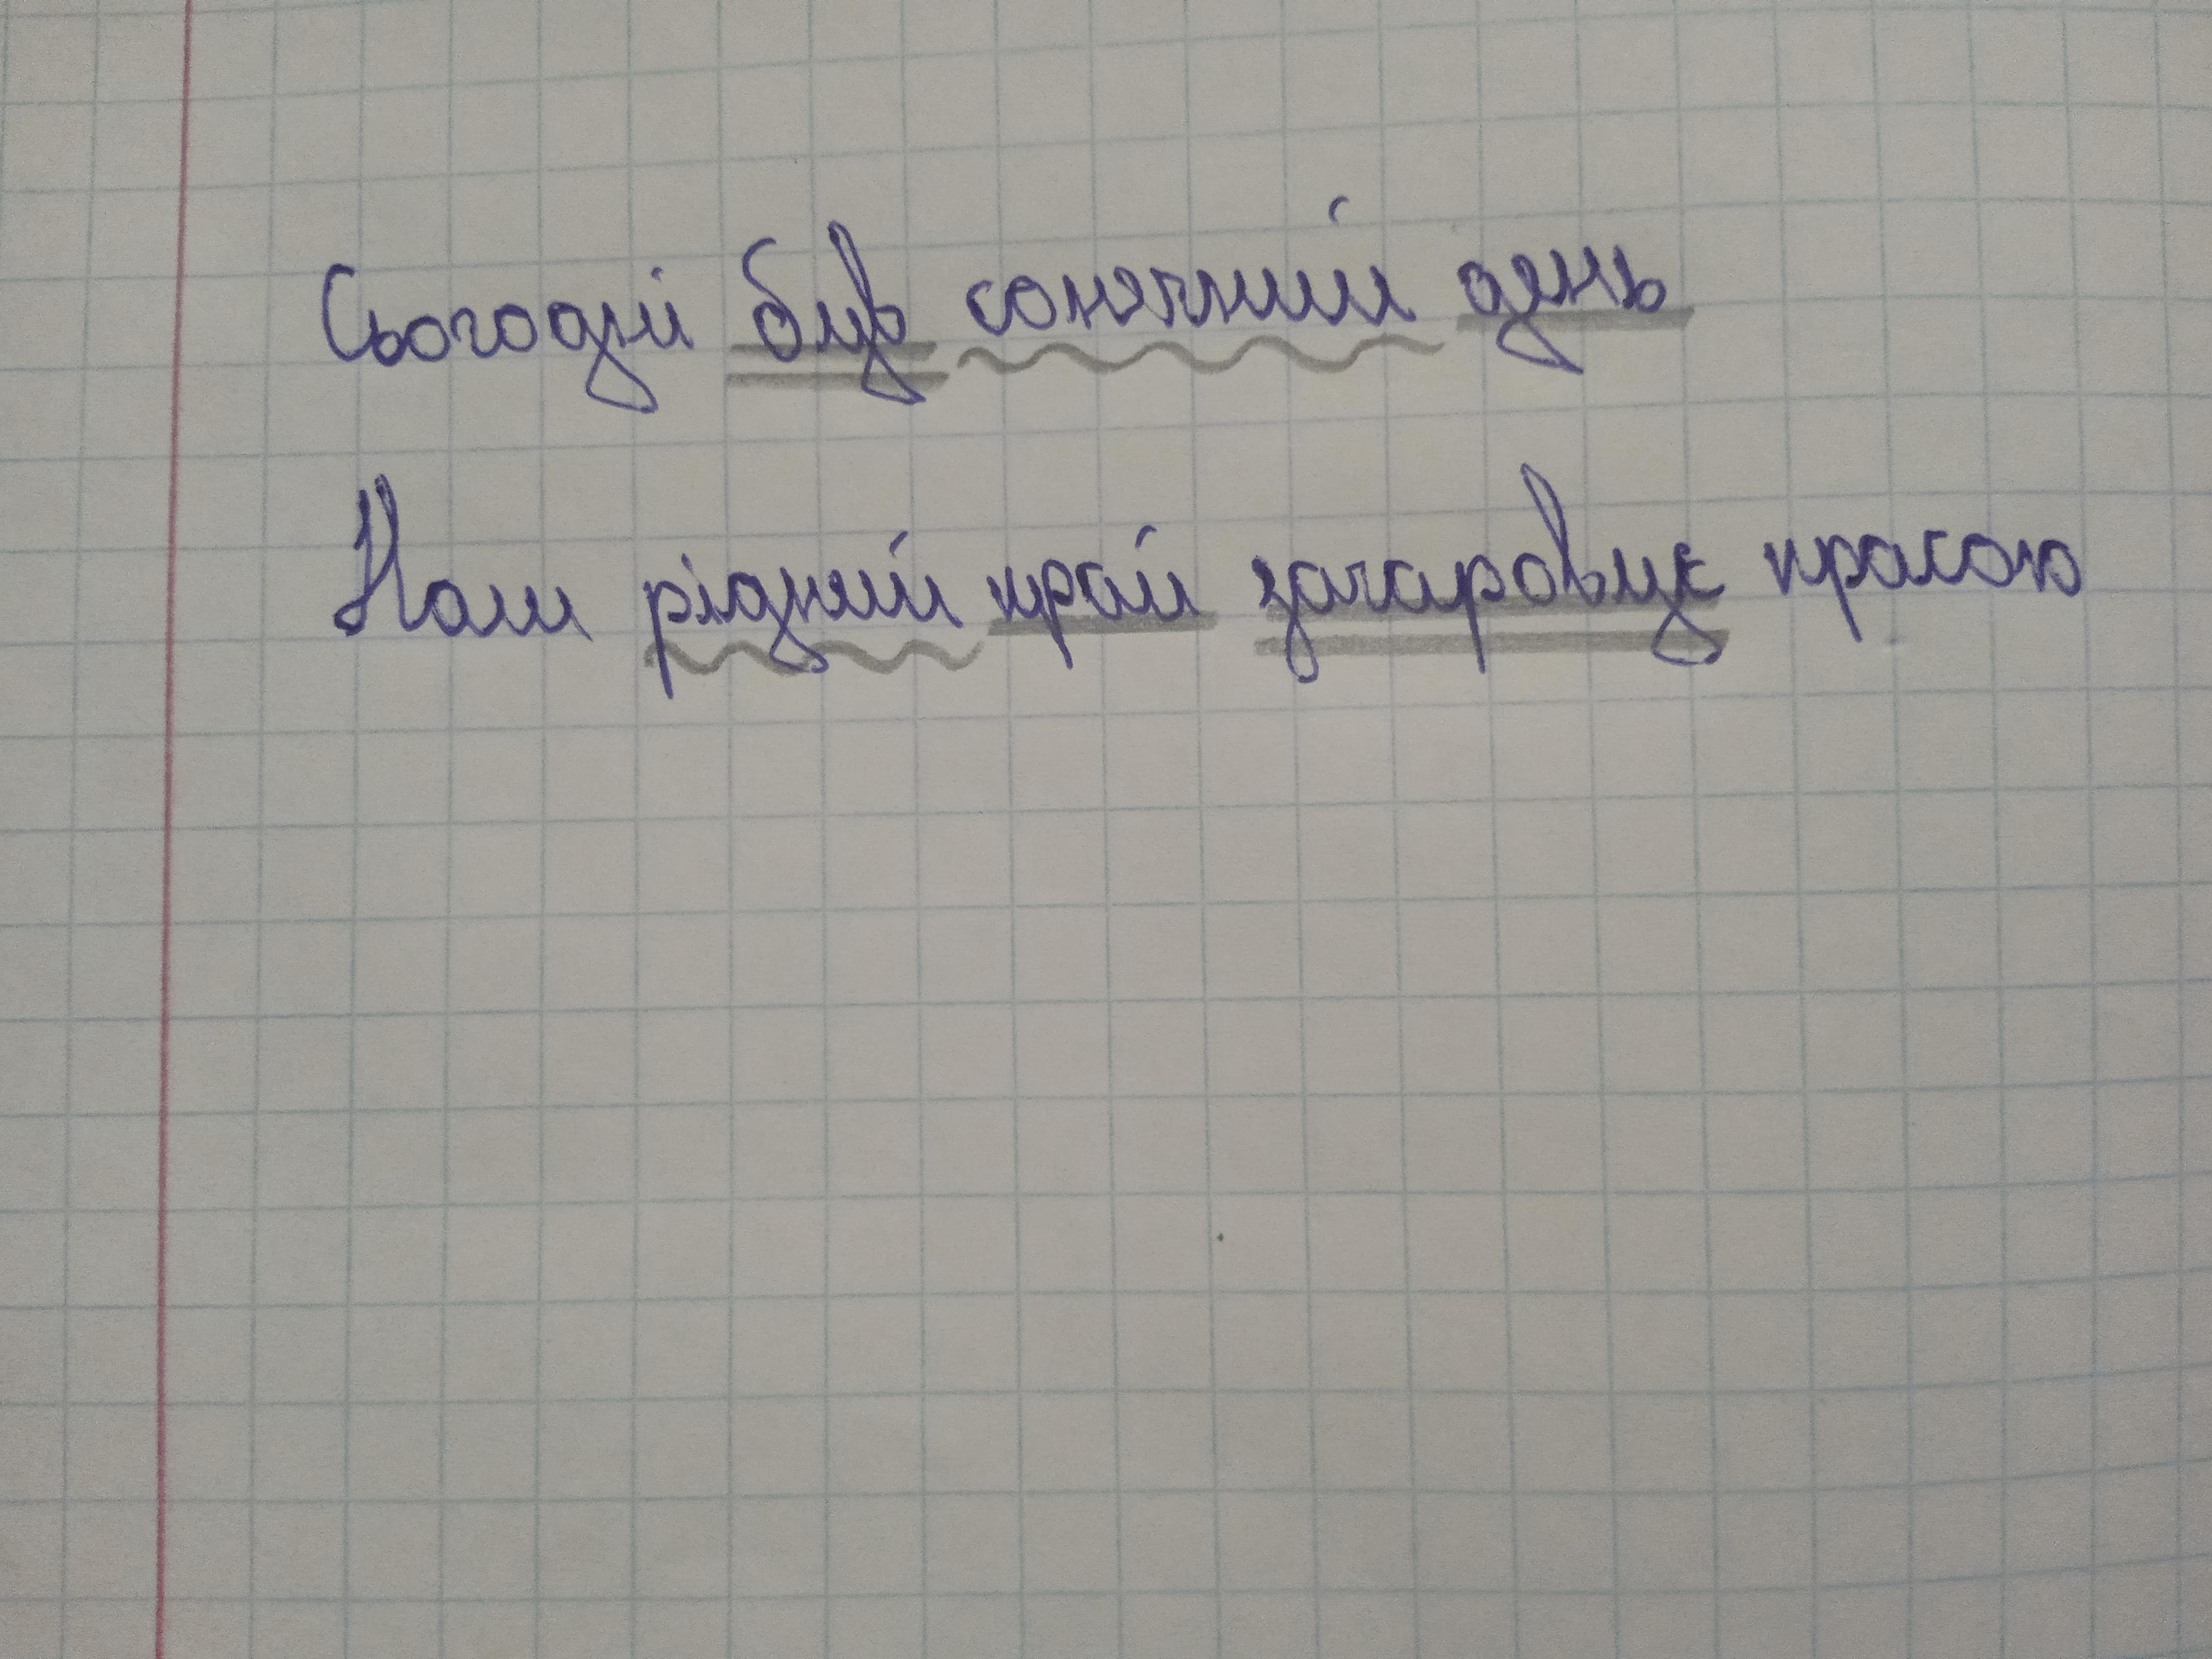 Сьогодні був сонячний день
Наш рідний край зачаровує красою